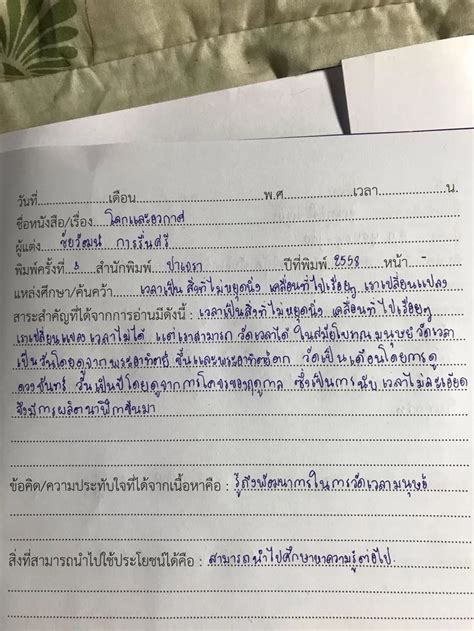 วันที่..................เดือน..............................พ.ศ...................เวลา...................น.
ชื่อหนังสือ/เรื่อง. โลกและอวกาศ
ผู้แต่ง ชัยวัฒน์ การรื่นศรี
พิมพ์ครั้งที่ 3 สำนักพิมพ์ ปาเจรา ปีที่พิมพ์ 2558 หน้า -
แหล่งศึกษา/ค้นคว้า เวลาเป็นสิ่งที่ไม่หยุดนิ่ง เคลื่อนที่ไปเรื่อยๆ เราเปลี่ยนแปลง
สาระสำคัญที่ได้จากการอ่านมีดังนี้ : เวลาเป็นสิ่งที่ไม่หยุดนิ่ง เคลื่อนที่ไปเรื่อยๆ
เราเปลี่ยนแปลงเวลาไม่ได้ แต่เราสามารถวัดเวลาได้ ในสมัยโบราณมนุษย์วัดเวลา
เป็นวันโดยดูจากพระอาทิตย์ขึ้นและพระอาทิตย์ตก วัดเป็นเดือนโดยการดู
ดวงจันทร์ วันเป็นปีโดยดูจากการโคจรของฤดูกาล ซึ่งเป็นการนับเวลาไม่ละเอียด
จึงมีการผลิตนาฬิกาขึ้นมา
ข้อคิด/ความประทับใจที่ได้จากเนื้อหาคือ : รู้ถึงพัฒนาการในการวัดเวลามนุษย์
สิ่งที่สามารถนำไปใช้ประโยชน์ได้คือ : สามารถนำไปศึกษาหาความรู้ต่อไป